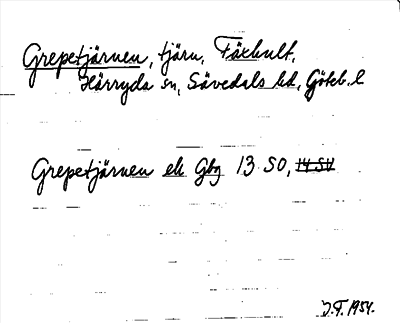 Grepetjärnen, tjärn, Fäxhult,
Härryda sn, Sävedals hd, Göteb. l
Grepetjärnen ek Gbg 13 SO, 14 SV
J.F. 1954.